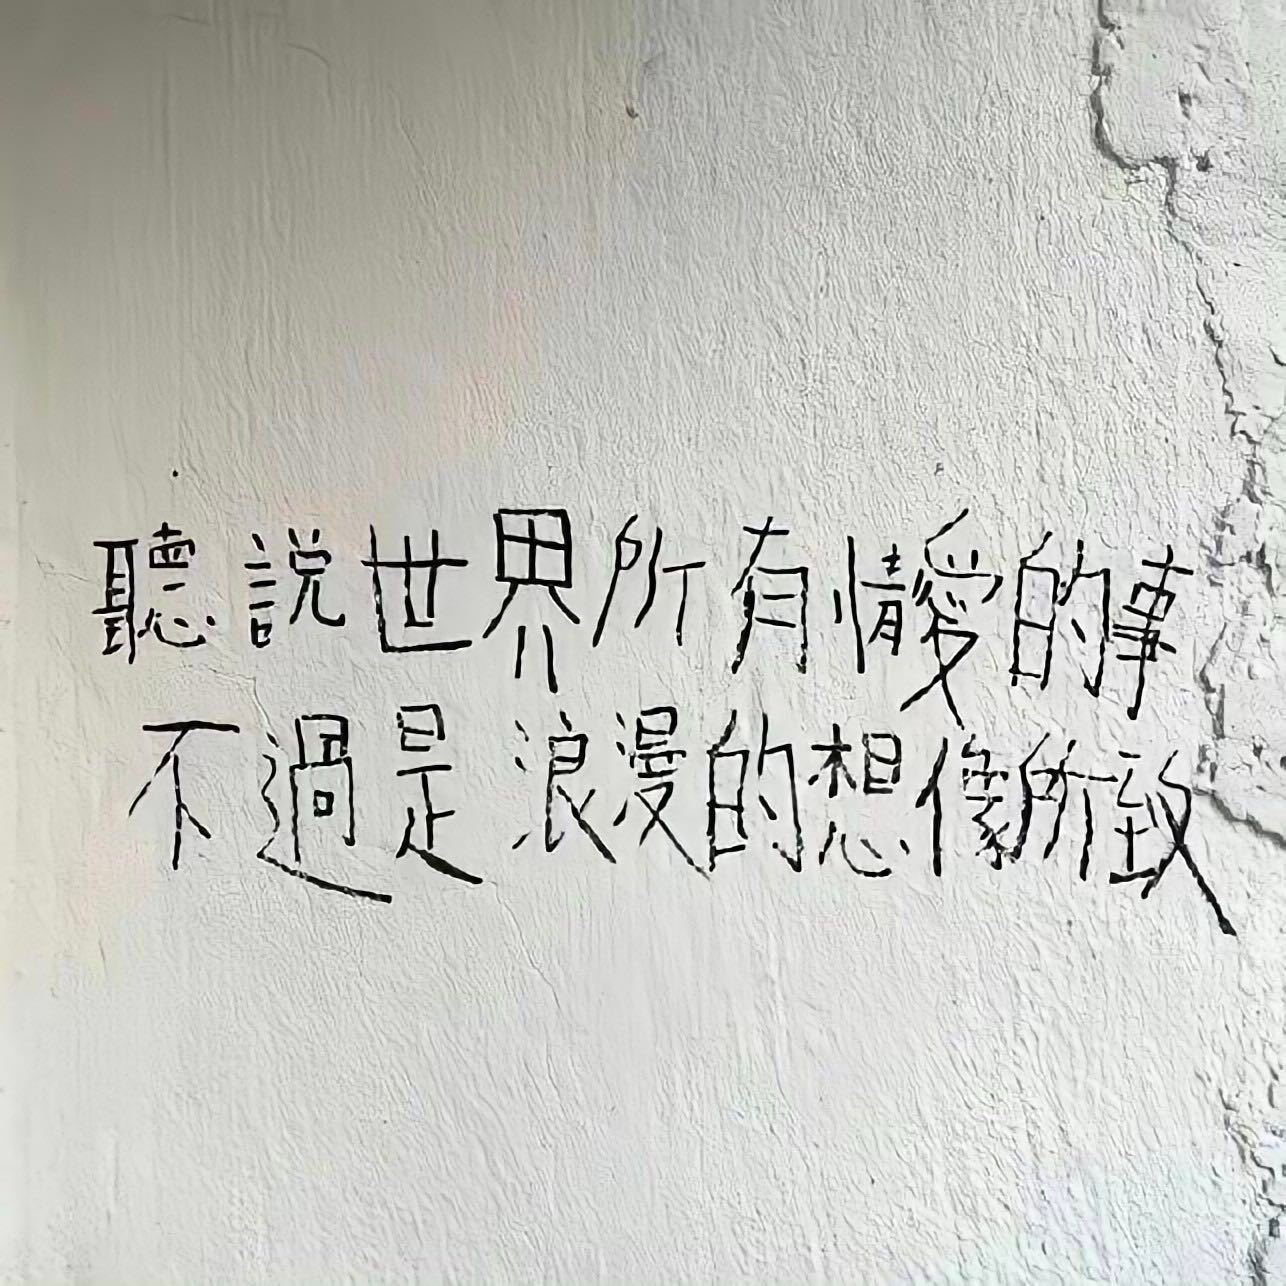 聽説世界所有情愛的事
不過是浪漫的想像所致